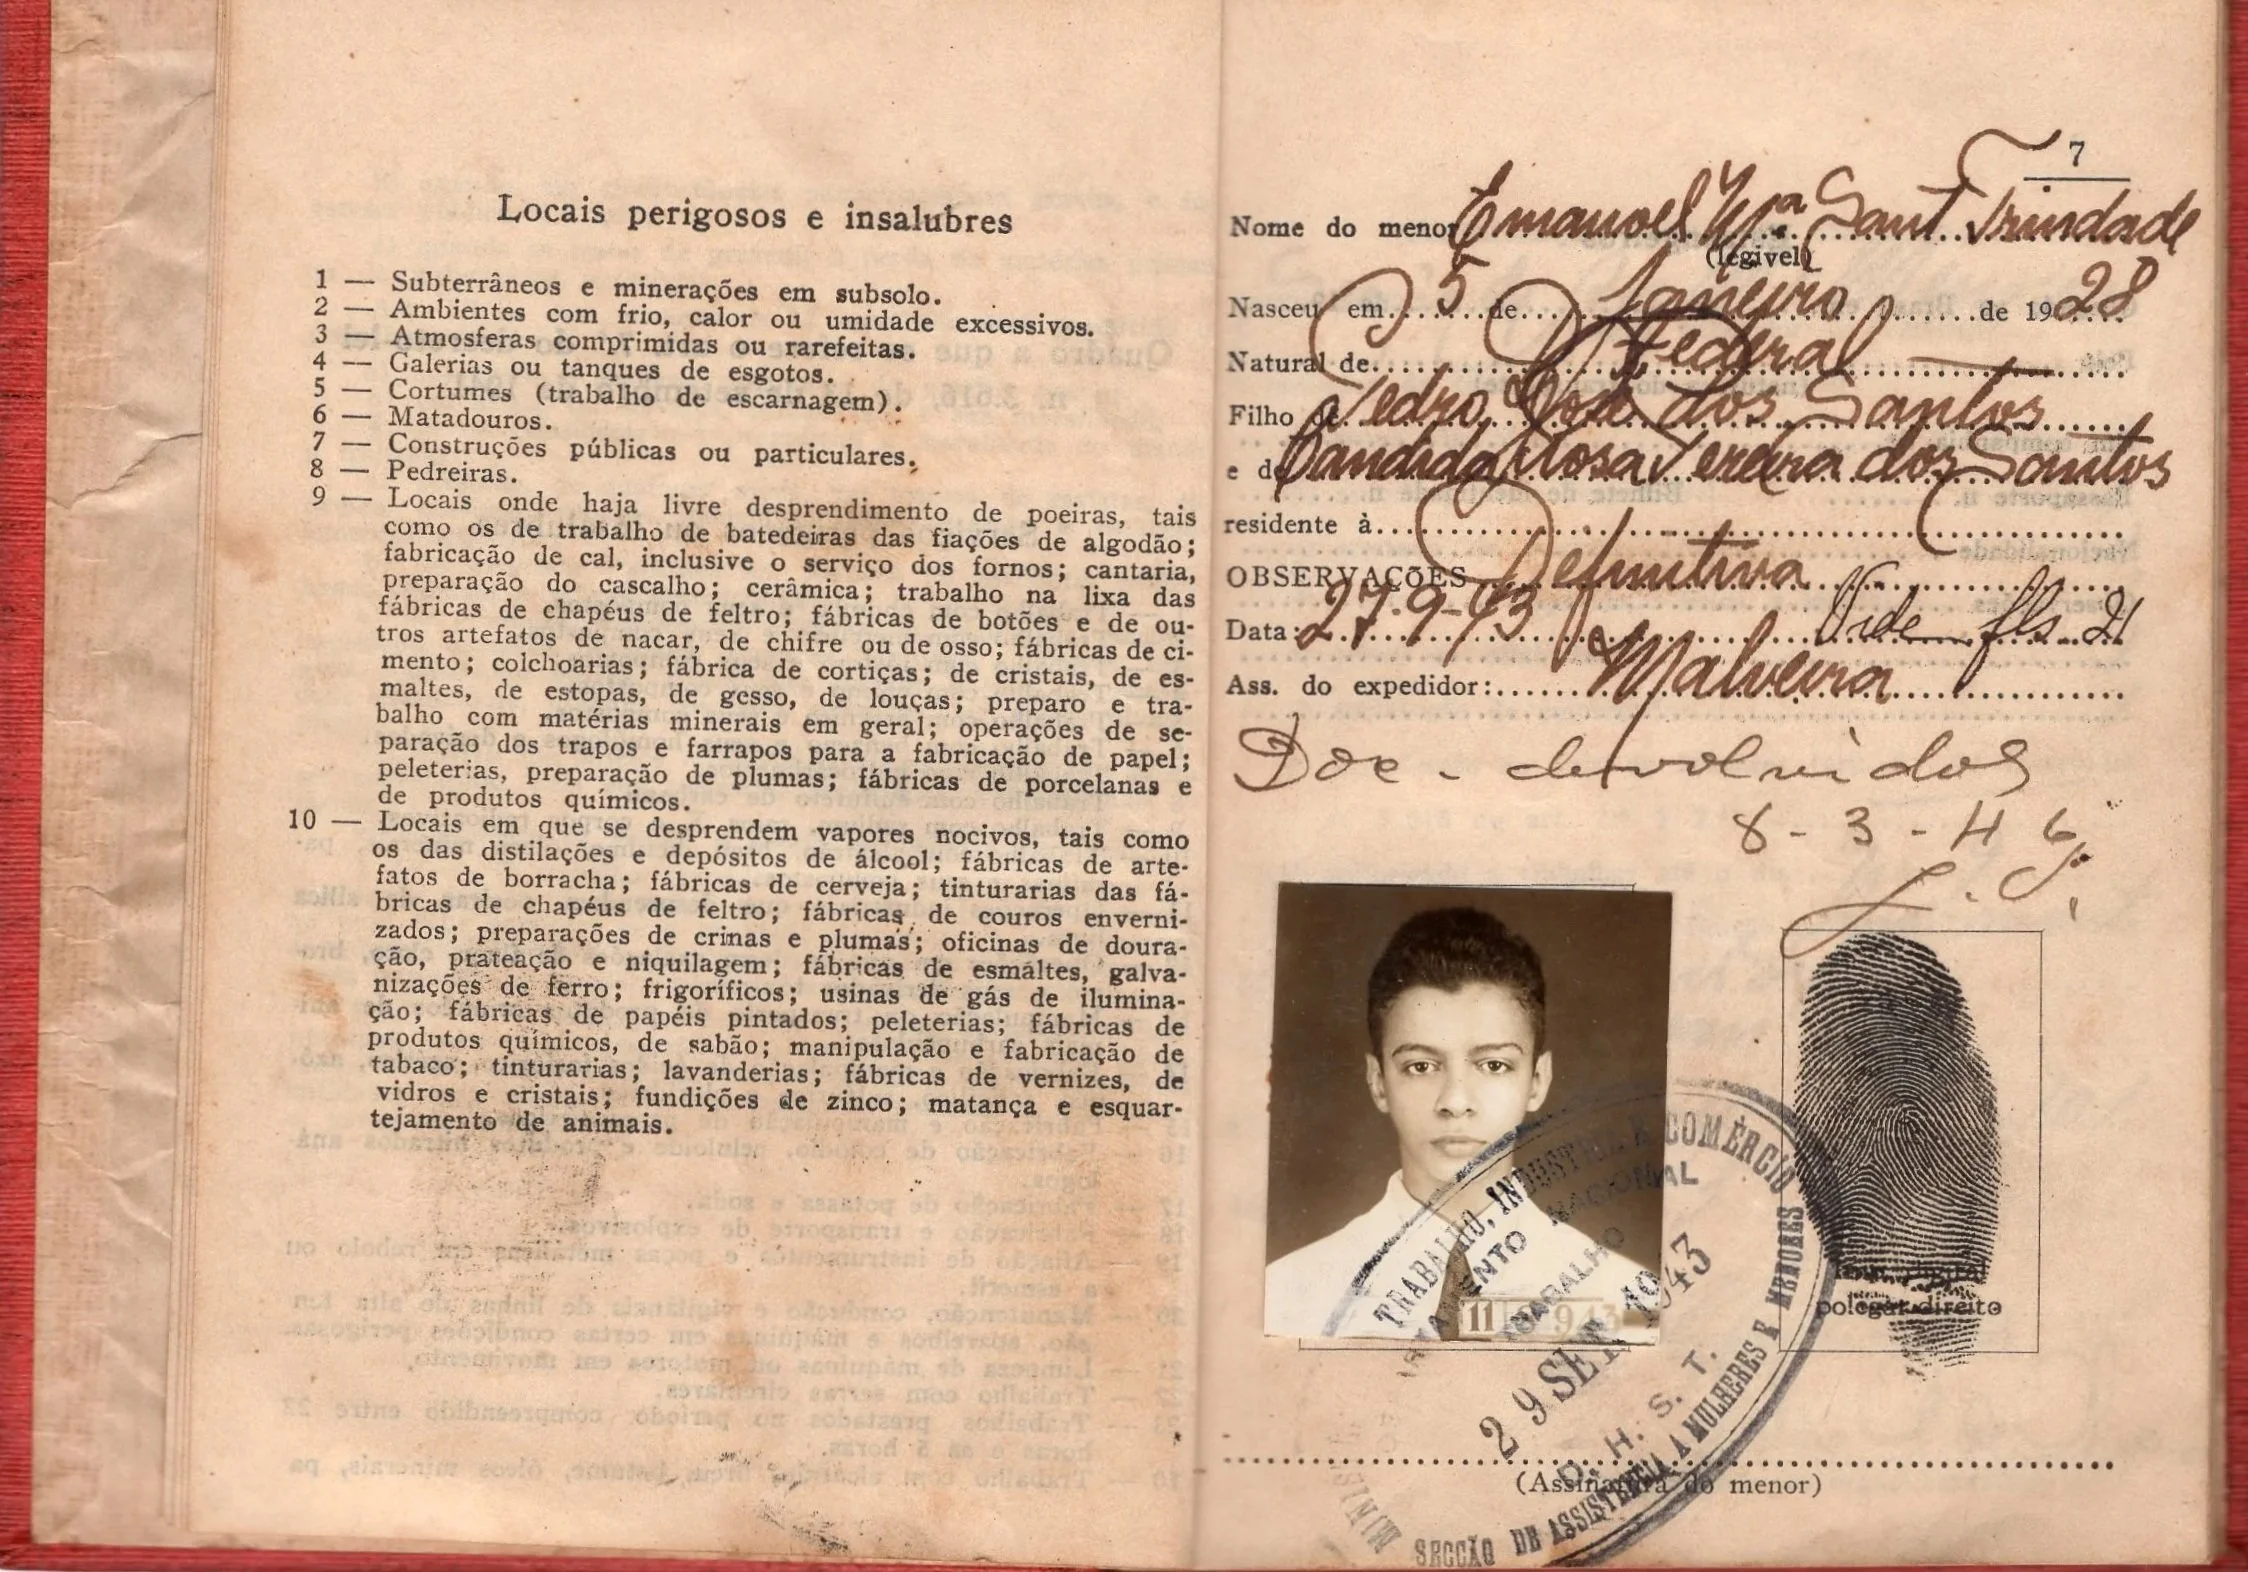 Locais perigosos e insalubres
1 — Subterrâneos e minerações em subsolo.
2 — Ambientes com frio, calor ou umidade excessivos.
3 — Atmosferas comprimidas ou rarefeitas.
4 — Galerias ou tanques de esgotos.
5 — Cortumes (trabalho de escarnagem).
6 — Matadouros.
7 — Construções públicas ou particulares.
8 — Pedreiras.
9 — Locais onde haja livre desprendimento de poeiras, tais
como os de trabalho de batedeiras das fiações de algodão;
fabricação de cal, inclusive o serviço dos fornos; cantaria,
preparação do cascalho; cerâmica; trabalho na lixa das
fábricas de chapéus de feltro; fábricas de botões e de ou-
tros artefatos de nacar, de chifre ou de osso; fábricas de ci-
mento; colchoarias; fábrica de cortiças; de cristais, de es-
maltes, de estopas, de gesso, de louças; preparo e tra-
balho com matérias minerais em geral; operações de se-
paração dos trapos e farrapos para a fabricação de papel;
peleterias, preparação de plumas; fábricas de porcelanas e
de produtos químicos.
10 — Locais em que se desprendem vapores nocivos, tais como
os das distilações e depósitos de álcool; fábricas de arte-
fatos de borracha; fábricas de cerveja; tinturarias das fá-
bricas de chapéus de feltro; fábricas de couros enverni-
zados; preparações de crinas e plumas; oficinas de doura-
ção, prateação e niquilagem; fábricas de esmaltes, galva-
nizações de ferro; frigoríficos; usinas de gás de ilumina-
ção; fábricas de papéis pintados; peleterias; fábricas de
produtos químicos, de sabão; manipulação e fabricação de
tabaco; tinturarias; lavanderias; fábricas de vernizes, de
vidros e cristais; fundições de zinco; matança e esquar-
tejamento de animais.
7
Nome do menor Emanoel Mª Sant. Trindade
(legivel)
Nasceu em 5 de Janeiro de 1928
Natural de D. Federal
Filho de Pedro José dos Santos
e de Candida Rosa Pereira dos Santos
residente à
OBSERVAÇÕES Definitiva
Data: 27-9-43 Vide fls. 21
Ass. do expedidor: Malveira
Doc. devolvidos
8-3-46
11 9 43
TRABALHO, INDUSTRIA E COMÉRCIO
NACIONAL
TRABALHO
29 SET 1943
D. H. S. T.
SECCÃO DE ASSISTENCIA A MULHERES E MENORES
polegar direito
(Assinatura do menor)